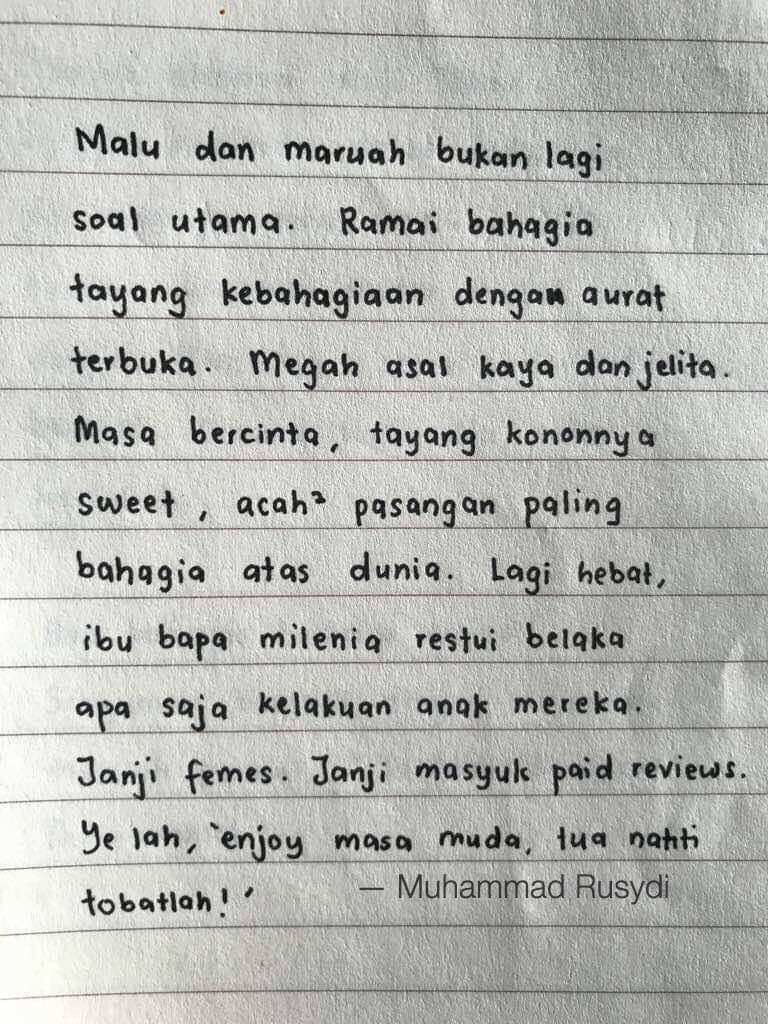 Malu dan maruah bukan lagi
soal utama. Ramai bahagia
tayang kebahagiaan dengan aurat
terbuka. Megah asal kaya dan jelita.
Masa bercinta, tayang kononnya
sweet, acah² pasangan paling
bahagia atas dunia. Lagi hebat,
ibu bapa milenia restui belaka
apa saja kelakuan anak mereka.
Janji femes. Janji masyuk paid reviews.
Ye lah, 'enjoy masa muda, tua nanti
tobatlah!'
— Muhammad Rusydi